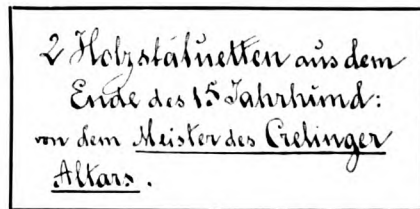 2 Holzstatuetten aus dem
Ende des 15 Jahrhund:
von dem Meister des Crelinger
Altars.